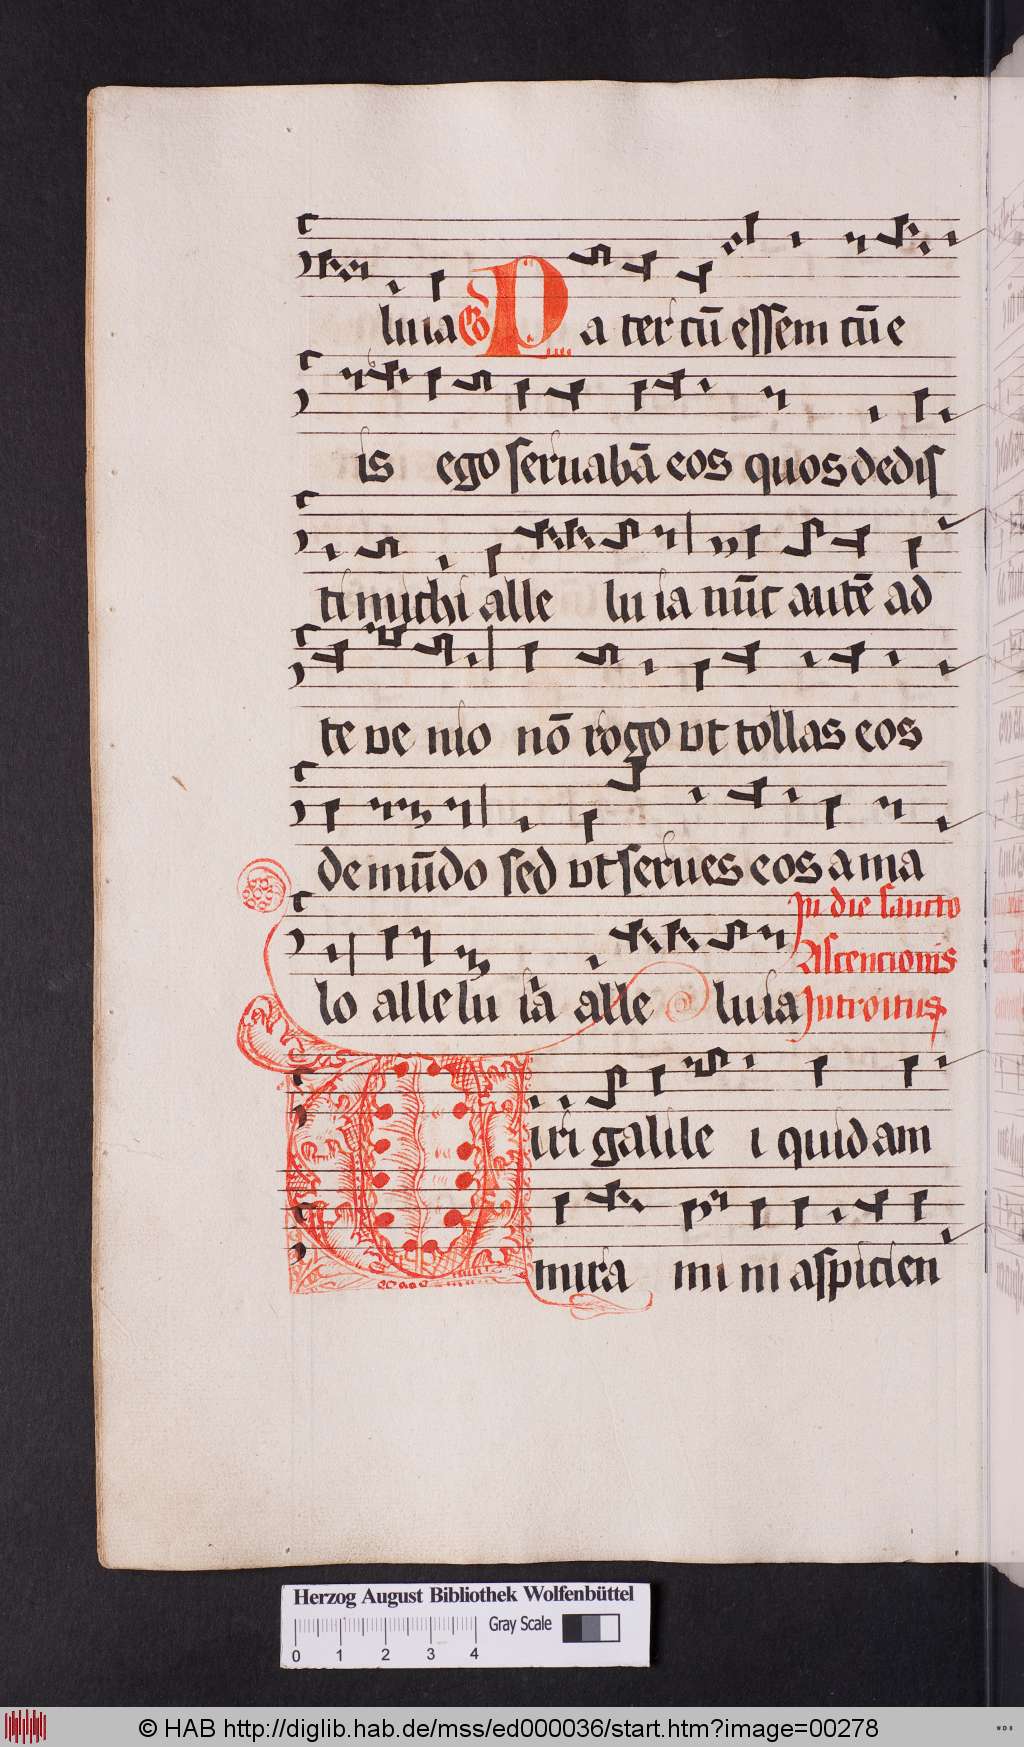 luia Co Pa ter cū essem cū e
is ego seruabā eos quos dedis
ti michi alle lu ia nūc autē ad
te ve nio nō rogo vt tollas eos
de mūdo sed vt serues eos a ma
In die sancto
Ascencionis
lo alle lu ia alle luia Introitus
Viri galile i quid am
mira mi ni aspicien
Herzog August Bibliothek Wolfenbüttel
Gray Scale
0 1 2 3 4
© HAB http://diglib.hab.de/mss/ed000036/start.htm?image=00278